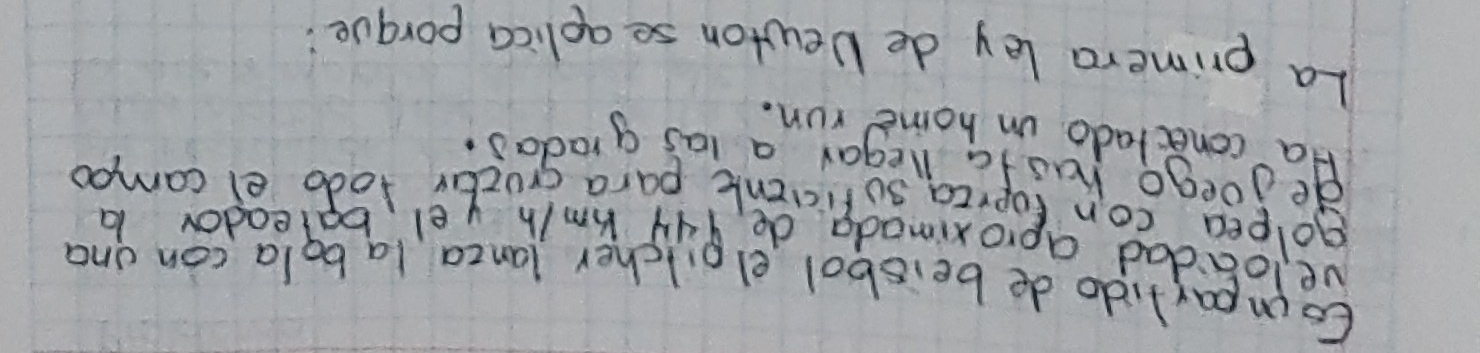 Es un partido de beisbol el pitcher lanza la bola con una
velocidad aproximada de 144 km/h y el bateador la
golpea con fuerza suficiente para cruzar todo el campo
de Juego hasta llegar a las gradas.
Ha conectado un home run.
La primera ley de Newton se aplica porque: